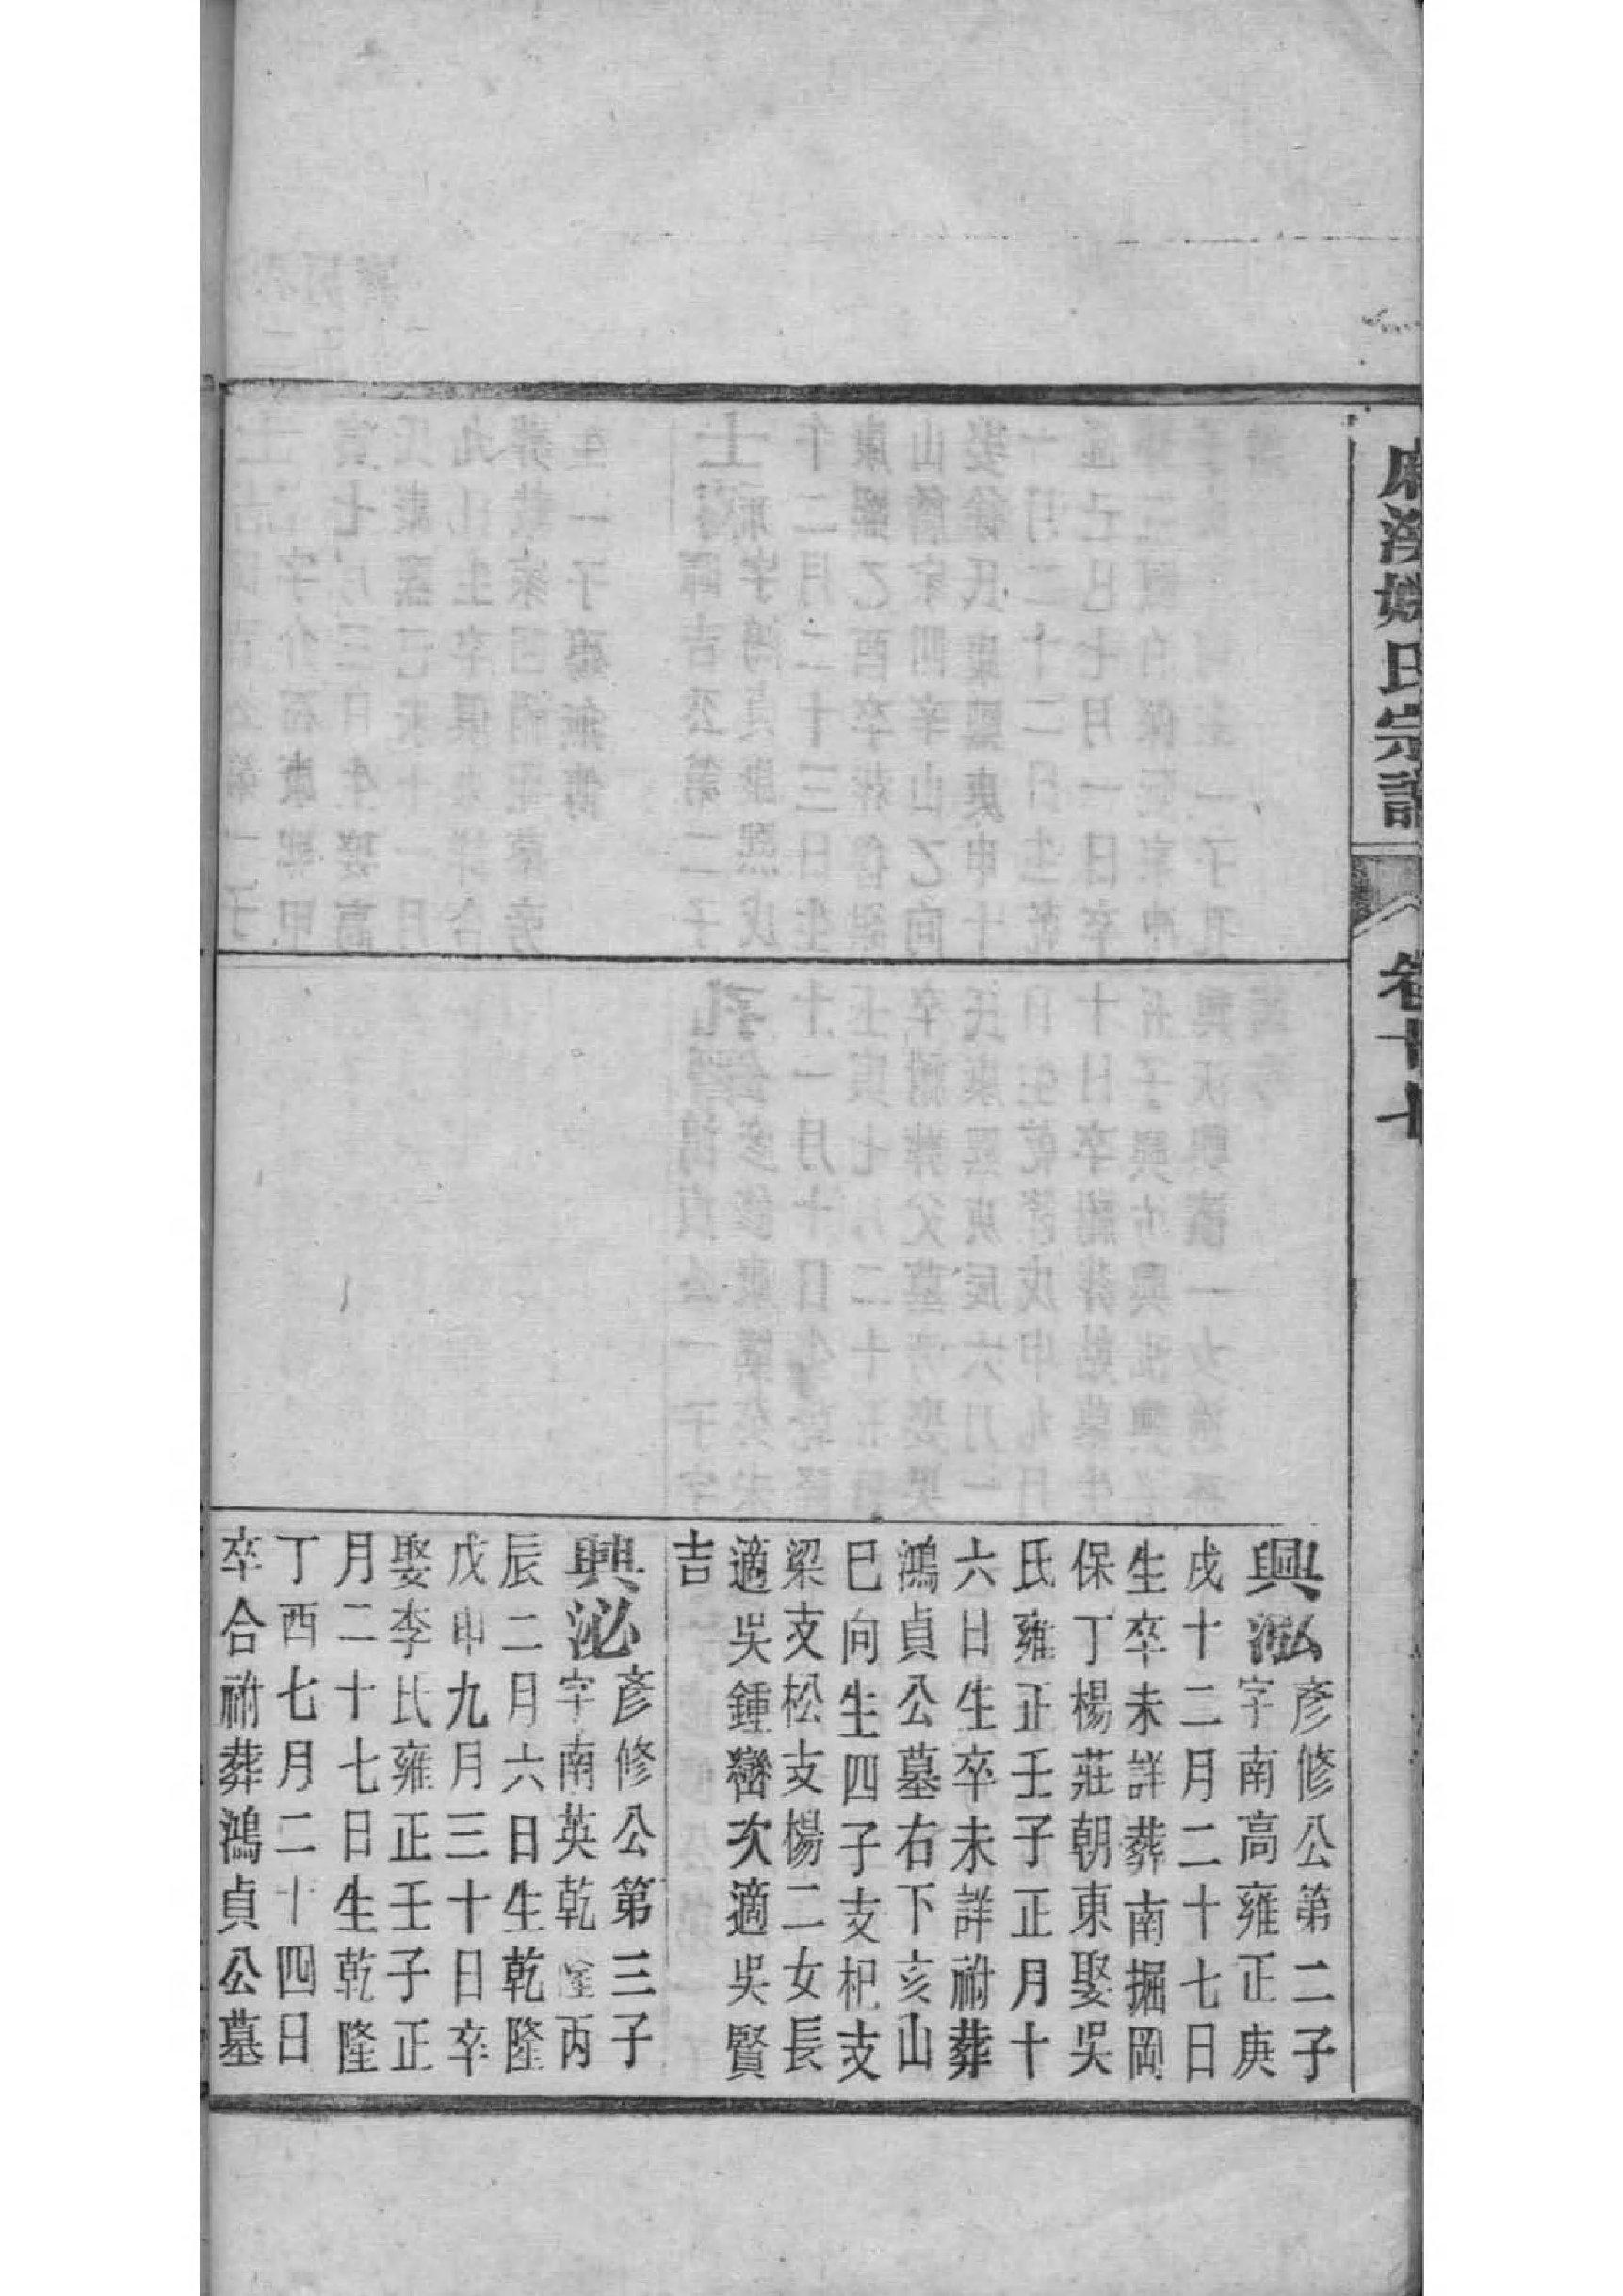 麻溪姚氏宗譜
卷十七
興泓彥修公第二子
字南高雍正庚
戌十二月二十七日
生卒未詳葬南掘岡
保丁楊莊朝東娶吳
氏雍正壬子正月十
六日生卒未詳祔葬
鴻貞公墓右下亥山
巳向生四子支杞支
梁支松支楊二女長
適吳鍾巒次適吳賢
吉
興泌彥修公第三子
字南英乾隆丙
辰二月六日生乾隆
戊申九月三十日卒
娶李氏雍正壬子正
月二十七日生乾隆
丁酉七月二十四日
卒合祔葬鴻貞公墓